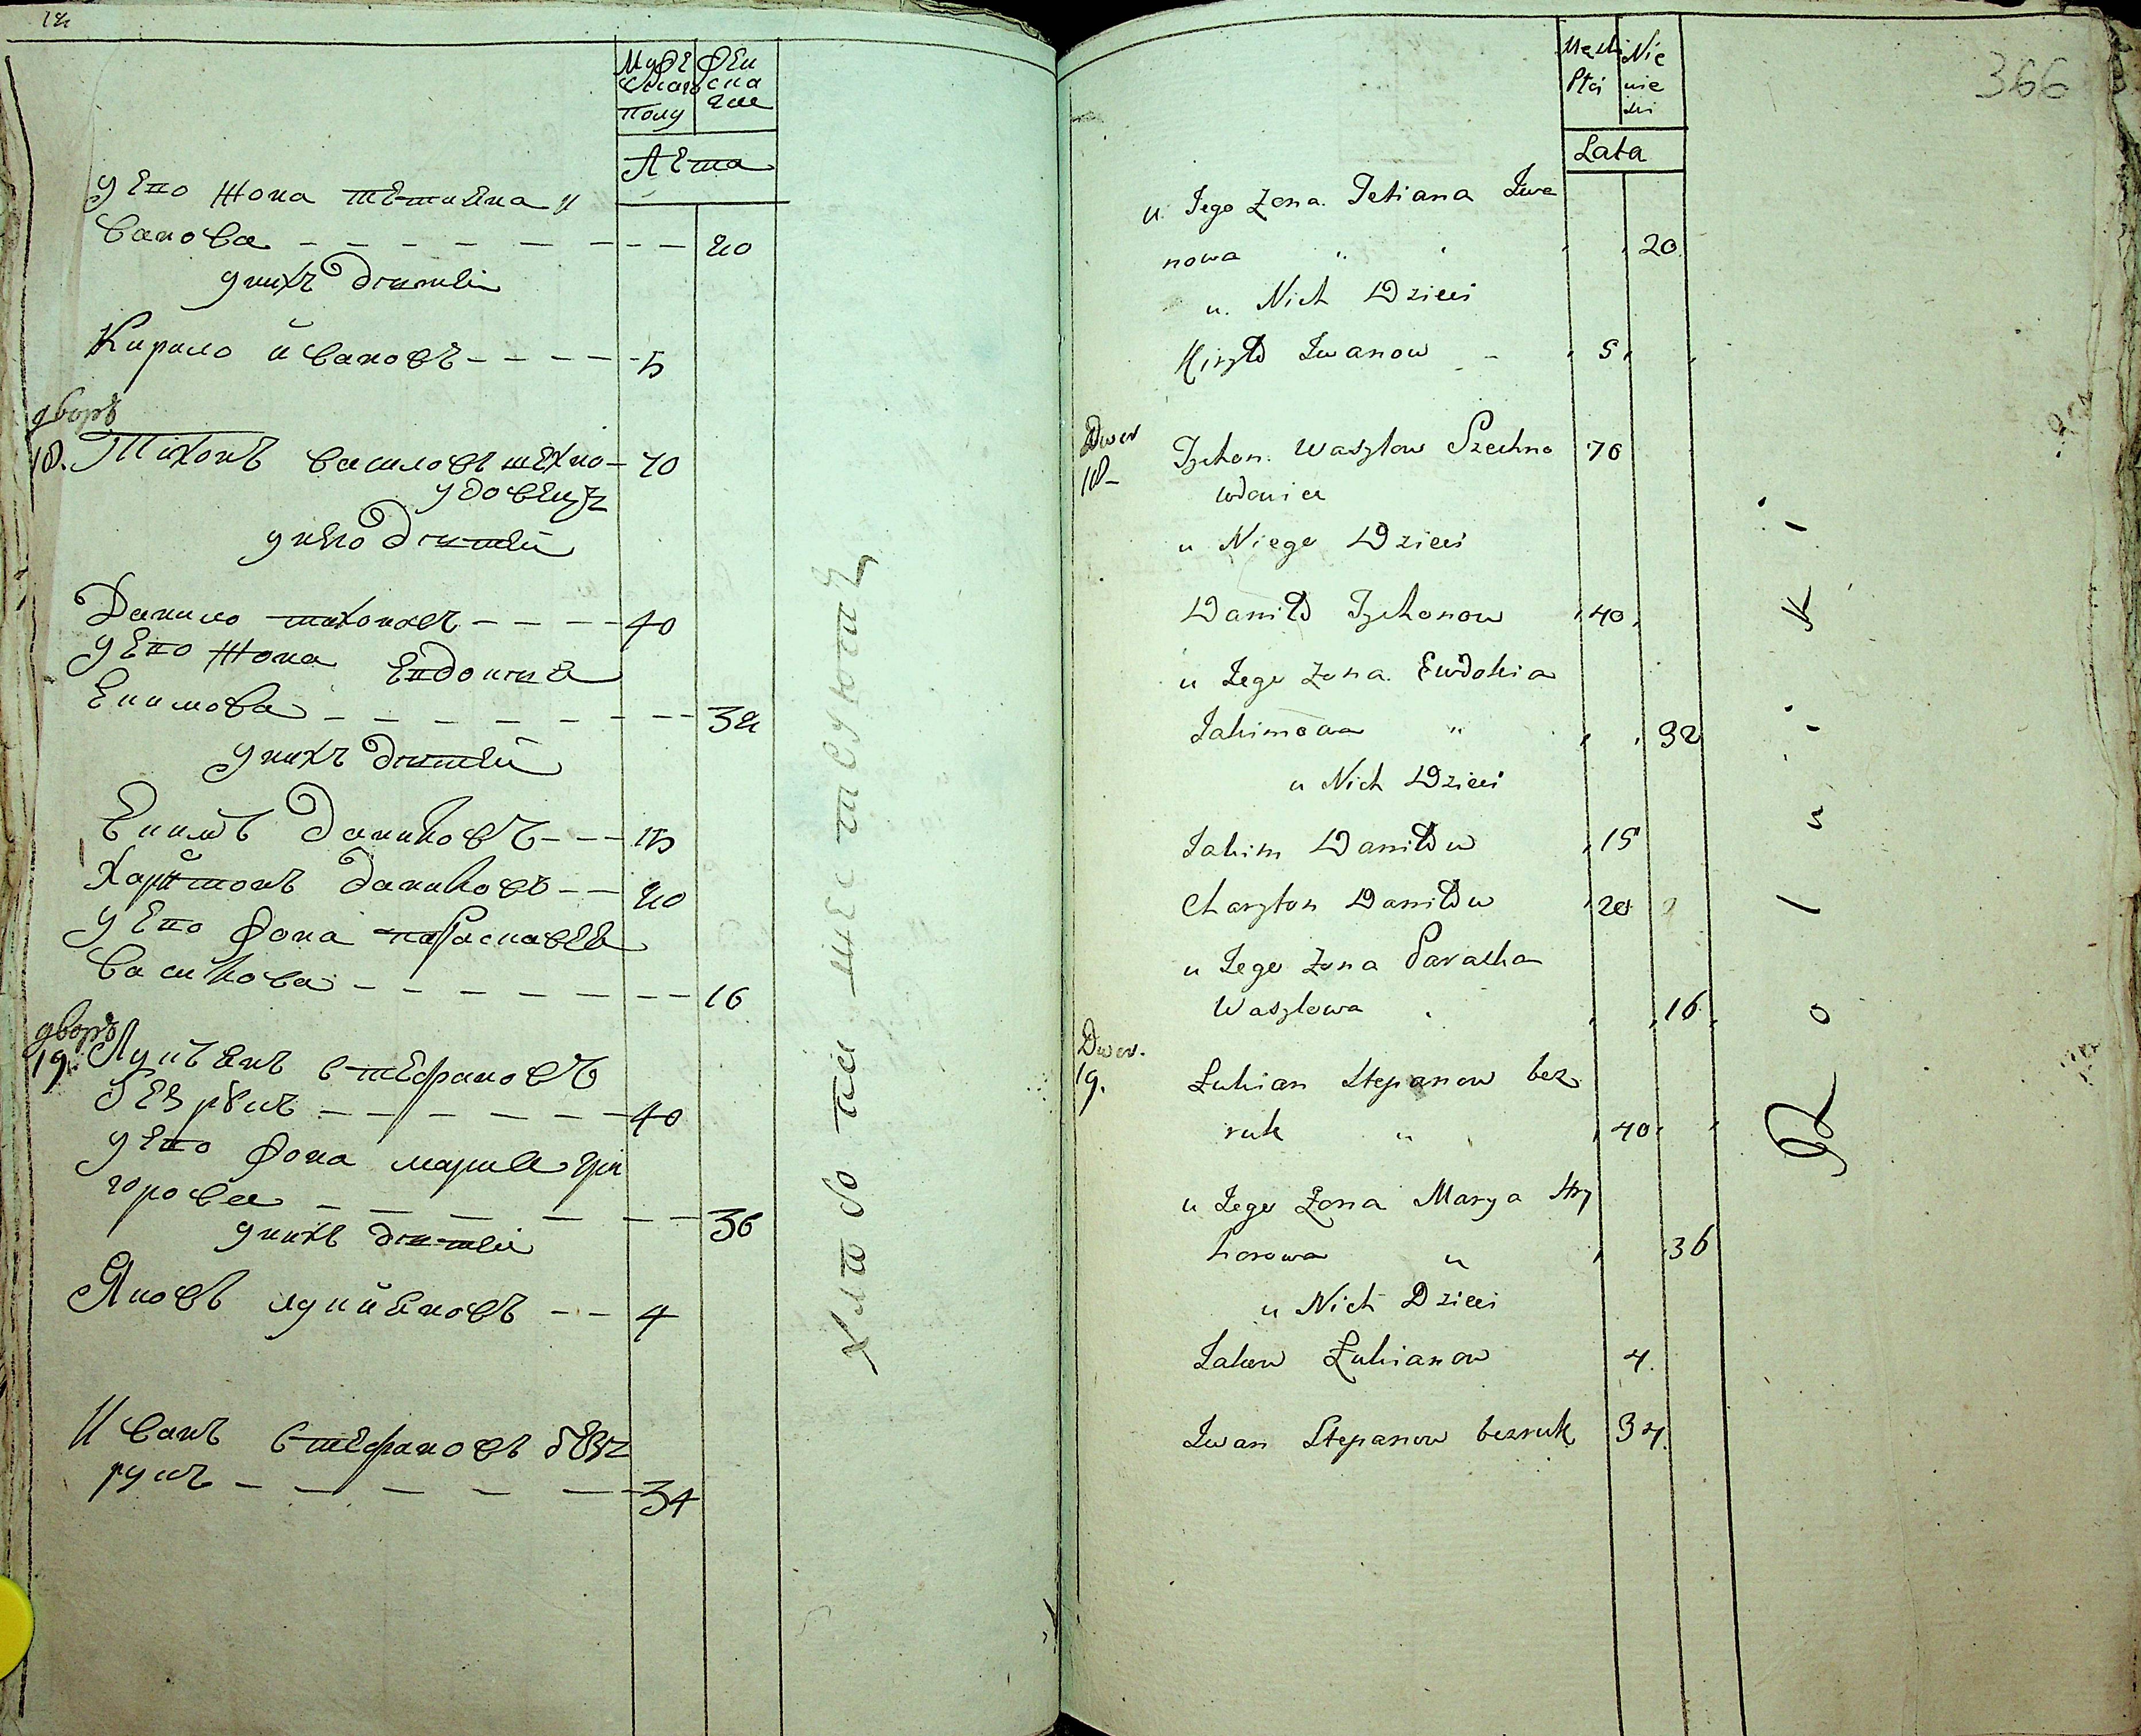 12
Мужескаго полу
Женскаго
Лета
у его жона тетияна и
ванова 20
у нихъ дѣтей
Кирило йвановъ 5
дворъ
18. Тихонъ василовъ шехно 70
удовецъ
у него дѣтей
Данило тихоновъ 40
у его жона евдокия
Екимова 32
у нихъ дѣтей
Екимъ даниловъ 15
Харитонъ даниловъ 20
у его жона параскавея
василова 16
дворъ
19. Лукъянъ стефановъ
безрукъ 40
у его жона мария гри
горова 36
у нихъ дѣтей
Яковъ лукиановъ 4
Иванъ стефановъ безъ
рукъ 34
366
Męski Nie
Płci wie
ski
Lata
u Jego Żona Tetiana Iwa
nowa 20
u Nich Dzieci
Kiryło Iwanow 5
Dwor
18 Tychon Wasylow Szechno 70
wdowiec
u Niego Dzieci
Daniło Tychonow 40
u Jego Żona Ewdokia
Jakimowa 32
u Nich Dzieci
Jakim Daniłow 15
Charyton Daniłow 20
u Jego Żona Paraska
Wasylowa 16
Dwor
19. Łukian Stepanow bez
ruk 40
u Jego Żona Marya Hry
horowa 36
u Nich Dzieci
Jakow Łukianow 4
Iwan Stepanow bezruk 34